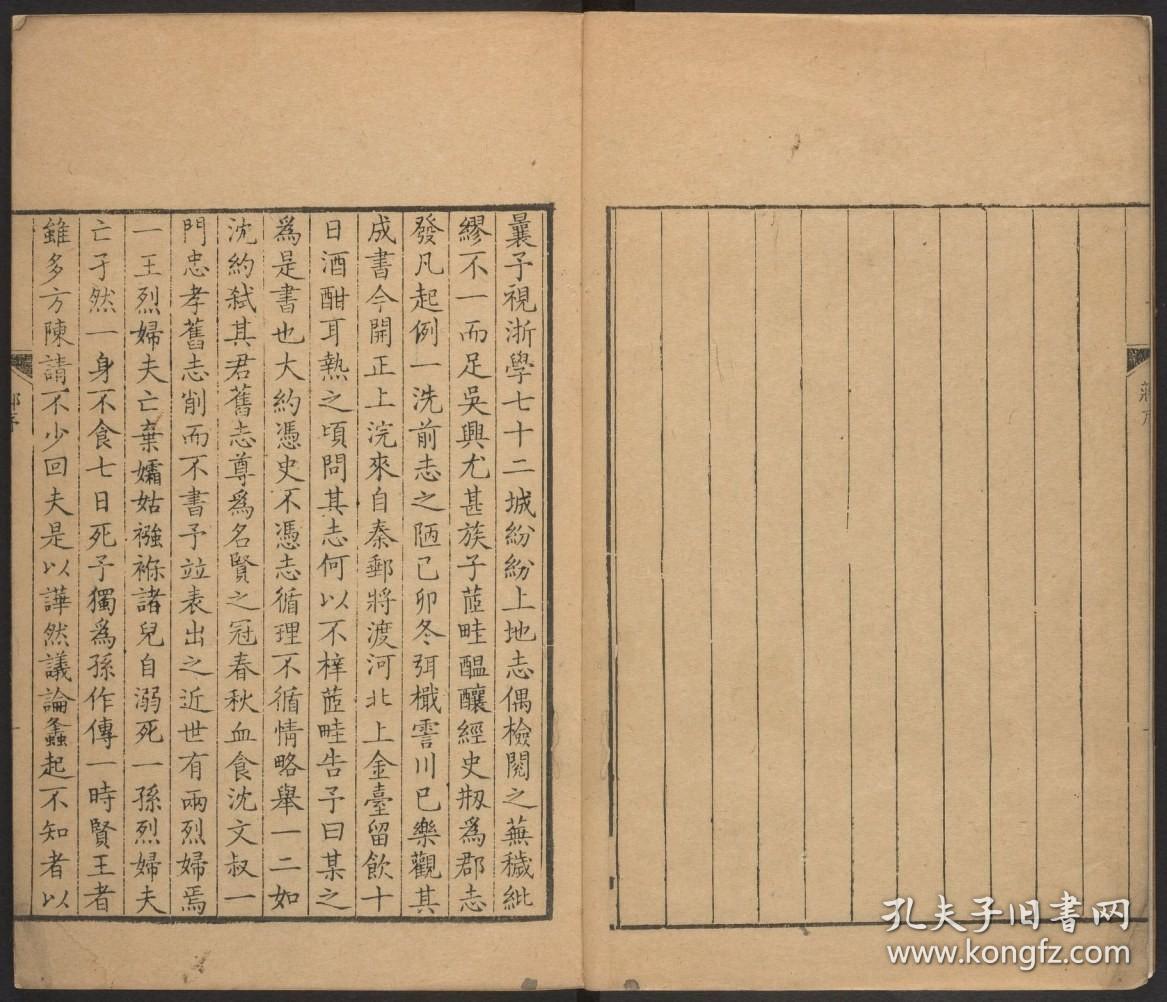 蔣序
曩予視浙學七十二城紛紛上地志偶檢閱之蕪穢紕
繆不一而足吳興尤甚族子茝畦醞釀經史剏為郡志
發凡起例一洗前志之陋己卯冬弭檝霅川已樂觀其
成書今開正上浣來自秦郵將渡河北上金臺留飲十
日酒酣耳熱之頃問其志何以不梓茝畦告予曰某之
為是書也大約憑史不憑志循理不循情略舉一二如
沈約弒其君舊志尊為名賢之冠春秋血食沈文叔一
門忠孝舊志削而不書予竝表出之近世有兩烈婦焉
一王烈婦夫亡棄孀姑襁褓諸兒自溺死一孫烈婦夫
亡孑然一身不食七日死予獨為孫作傳一時賢王者
雖多方陳請不少回夫是以譁然議論螽起不知者以
孔夫子旧书网
www.kongfz.com